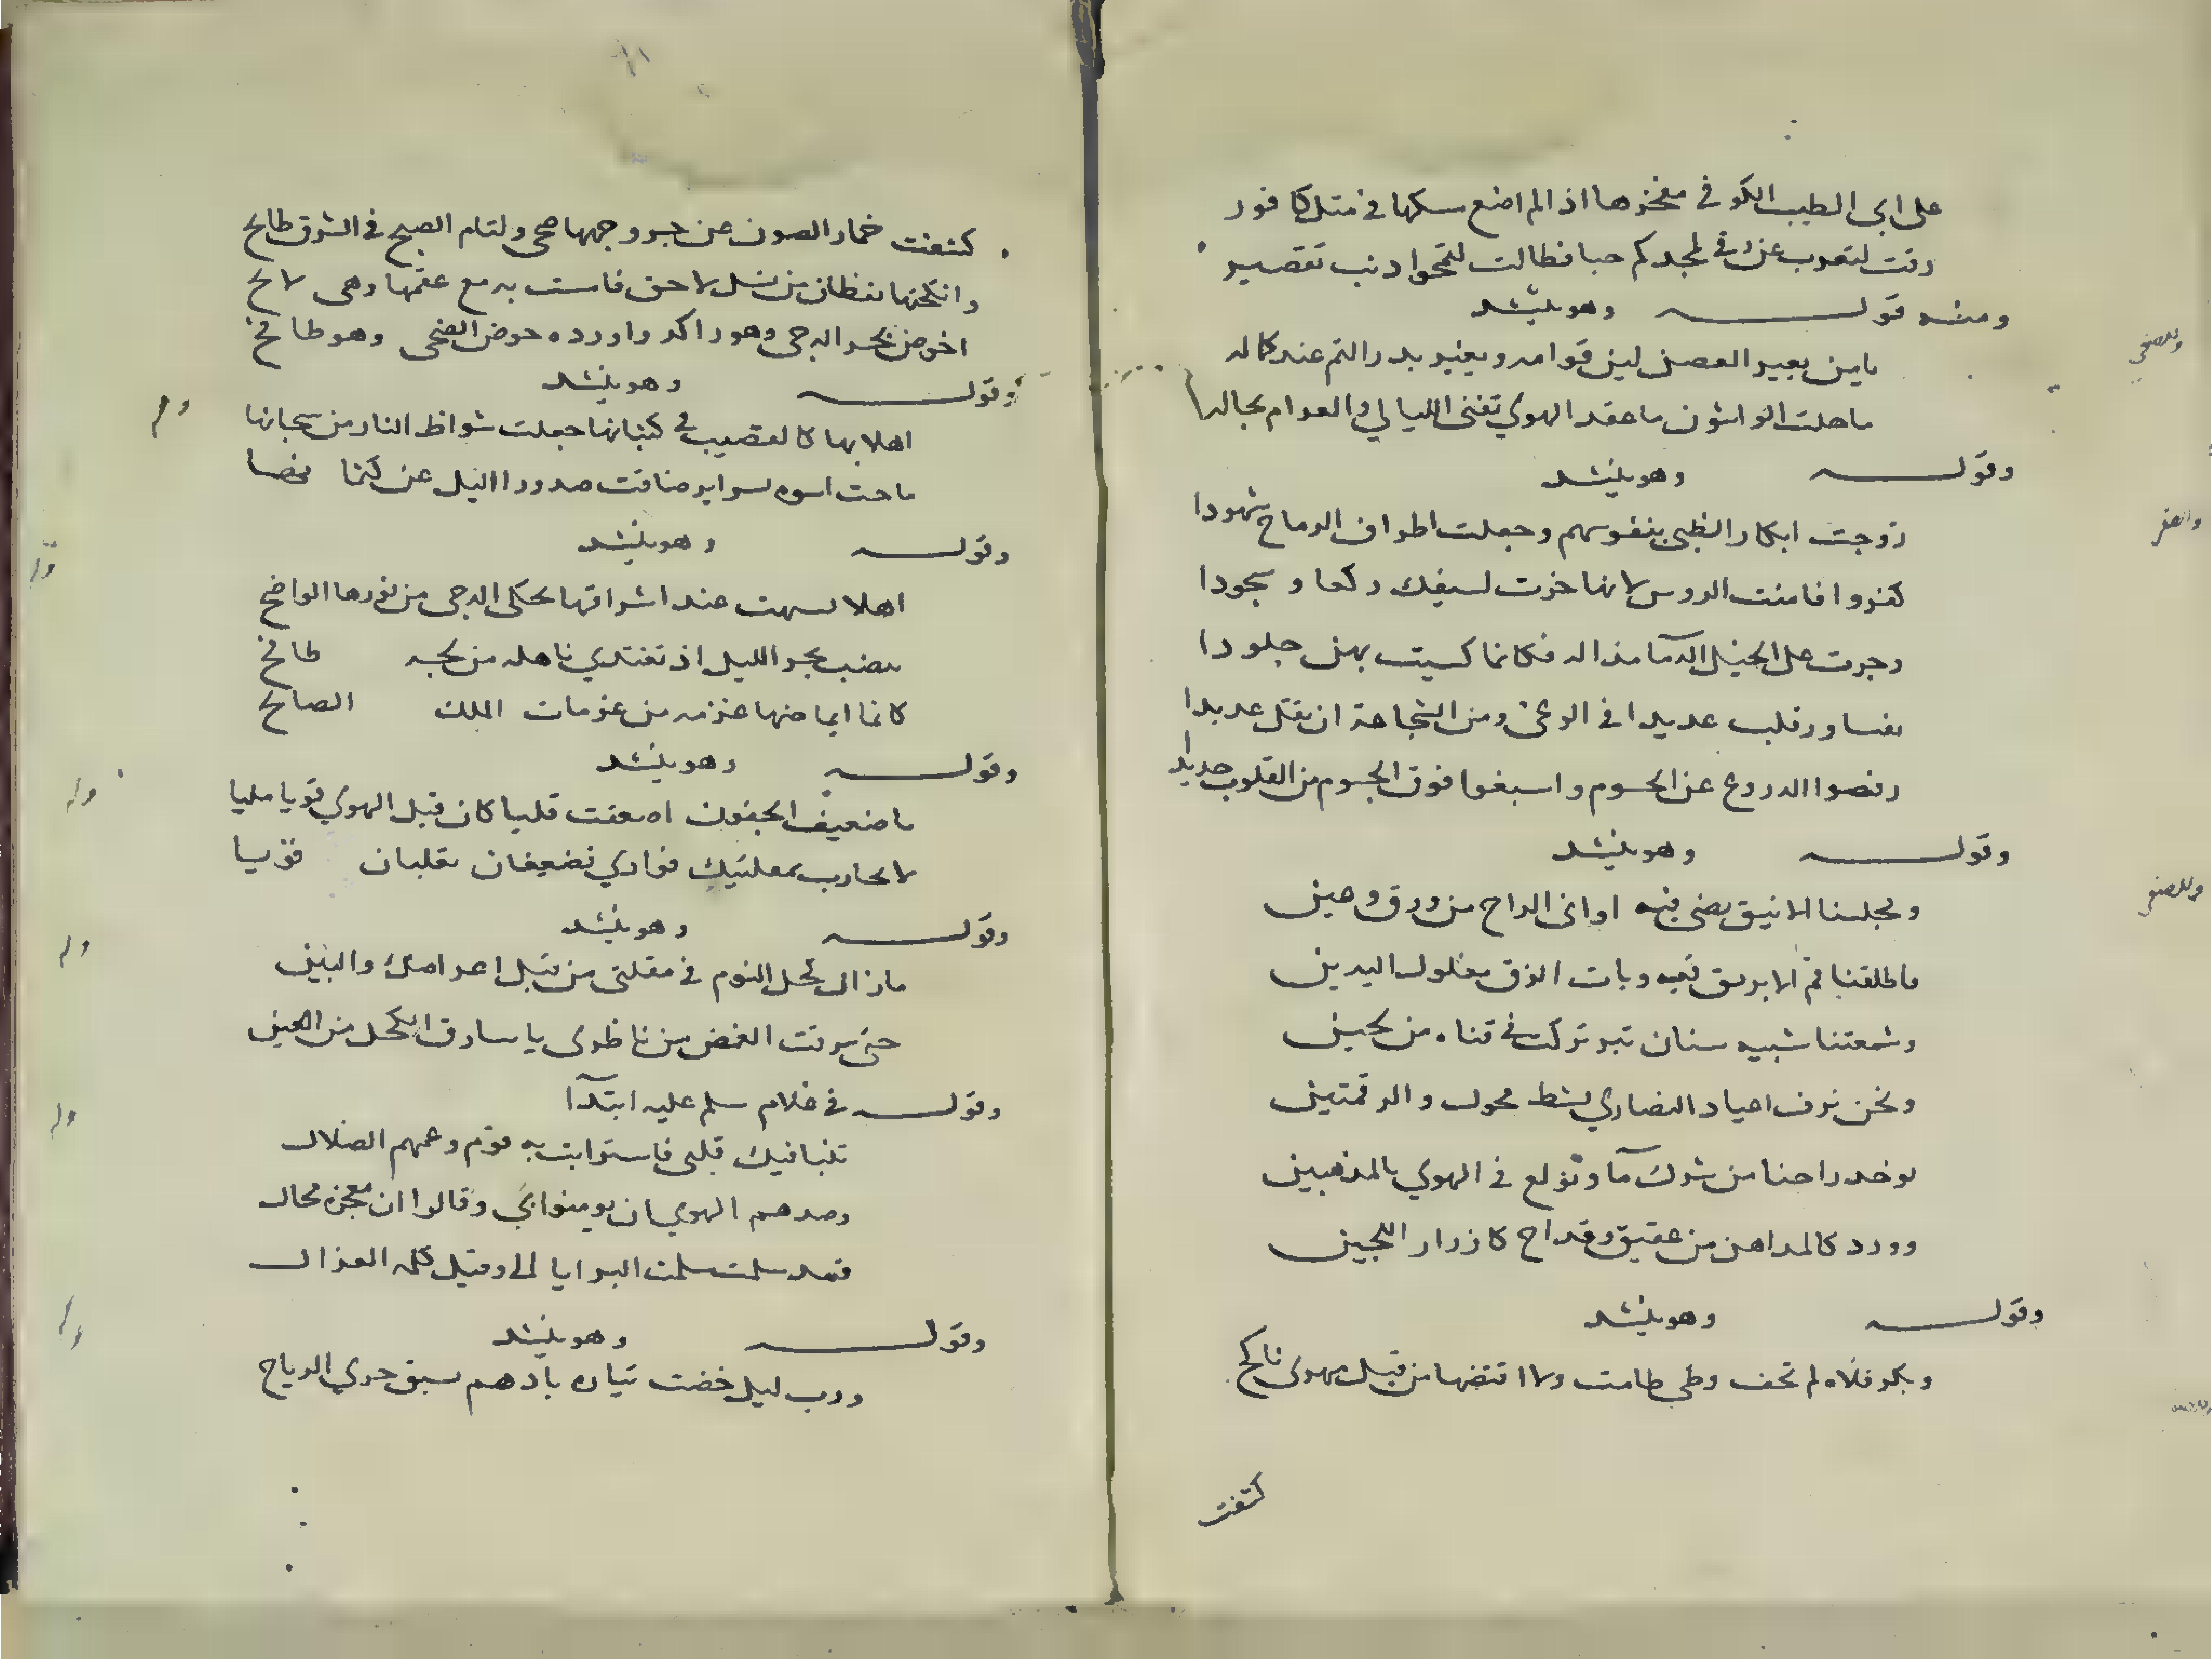 على ابى الطيب الكوفى مفخرها اذ لم اضع مسكها فى مثل كافور
رقت لتعرب عن رقى لمجدكم حبا فطالت لتمحوا ذنب تقصير
ومنه قوله وهو ينشد
يا من يعير الغصن لين قوامه ويغير بدر التم عند كماله
ما حلت الواشون ما عقد الهوى تفنى الليالى والغرام بحاله
وقوله وهو ينشد
زوجت ابكار الظبى بنفوسهم وجعلت اطراف الرماح شهودا
كفروا فامنت الروس لانها خرت لسيفك ركعا وسجودا
وجرت على الخيل الدما مذاله فكانما كسيت بهن جلودا
رفضوا الدروع عن الجسوم واسبغوا فوق الجسوم من القلوب حديدا
وقوله وهو ينشد
ومجلسنا الانيق يضى فيه اوانى الراح من ورق وعين
فاطلقنا فم الابريق فيه وبات الزق مغلول اليدين
وشمعتنا شبيه سنان تبر تركت فى قناه من لجين
ونحن نزف اعياد النصارى بشط محول والرقمتين
نوحد راحنا من شرك مآ ونولع فى الهوى بالمذهبين
وورد كالمداهن من عقيق وقداح كازرار اللجين
وقوله وهو ينشد
وبكر فلاه لم تخف وطى طامث ولا افتضها من قبل مهرى ناكح
كشفت
كشفت خمار الصون عن حر وجهها ضحى ولثام الصبح فى الشرق طائح
وانكحتها يقظان من نسل لاحق فامست به مع عقمها وهى لاقح
اخوض بحر الدجى وهو راكد واورده حوض الضحى وهو طافح
وقوله وهو ينشد
وله
اهلا بها كالقضيب فى كثبانها جعلت شواظ النار من تيجانها
وقوله وهو ينشد
اهلا بشهب عند اشراقها تحكى الدجى من نورها الواضح
ينضب بحر الليل اذ تغتدى ناهله من لجه طافح
كانما ايماضها عزمه من عزمات الملك الصالح
وقوله وهو ينشد
وله
يا ضعيف الجفون اضعفت قلبا كان قبل الهوى قويا مليا
لا تحارب بمقلتيك فوادى فضعيفان يغلبان قويا
وقوله وهو ينشد
وله
ما زال كحل النوم فى مقلتى من قبل اعراضك والبين
حتى سرقت الغمض من ناظرى يا سارق الكحل من العين
وقوله فى غلام سلم عليه ابتدآ
وله
تنبا فيك قلبى فاسترابت به قوم وعمهم الضلال
وصدهم الهوى ان يومنوا بى وقالوا ان معجزه محال
فمذ سلمت سلمت البرايا الى وقيل كلمه الغزال
وقوله وهو ينشد
ورب ليل خضت تياره بادهم سبق جرى الرياح